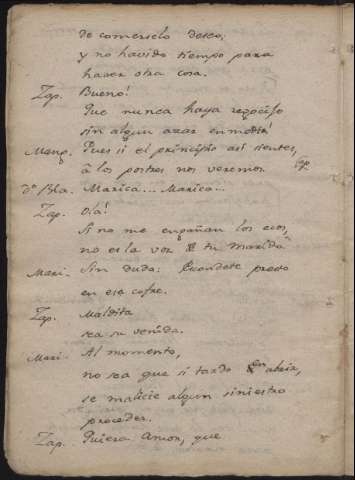 de comerselo deseo,
y no havido tiempo para
hacer otra cosa.
Zap. Bueno!
Que nunca haya regocijo
sin algun azar en medio!
Meng. Pues si el principio asi sientes,
â los postres nos veremos.
Dn. Bla. Marica... Marica...
Zap. Ola!
Si no me engañan los ecos,
no es la voz de tu marido?
Mari. Sin duda: Escondete presto
en ese cofre.
Zap. Maldita
sea su venida.
Mari. Al momento,
no sea que si tardo en abrir,
se malicie algun siniestro
proceder.
Zap. Quiera Amor, que